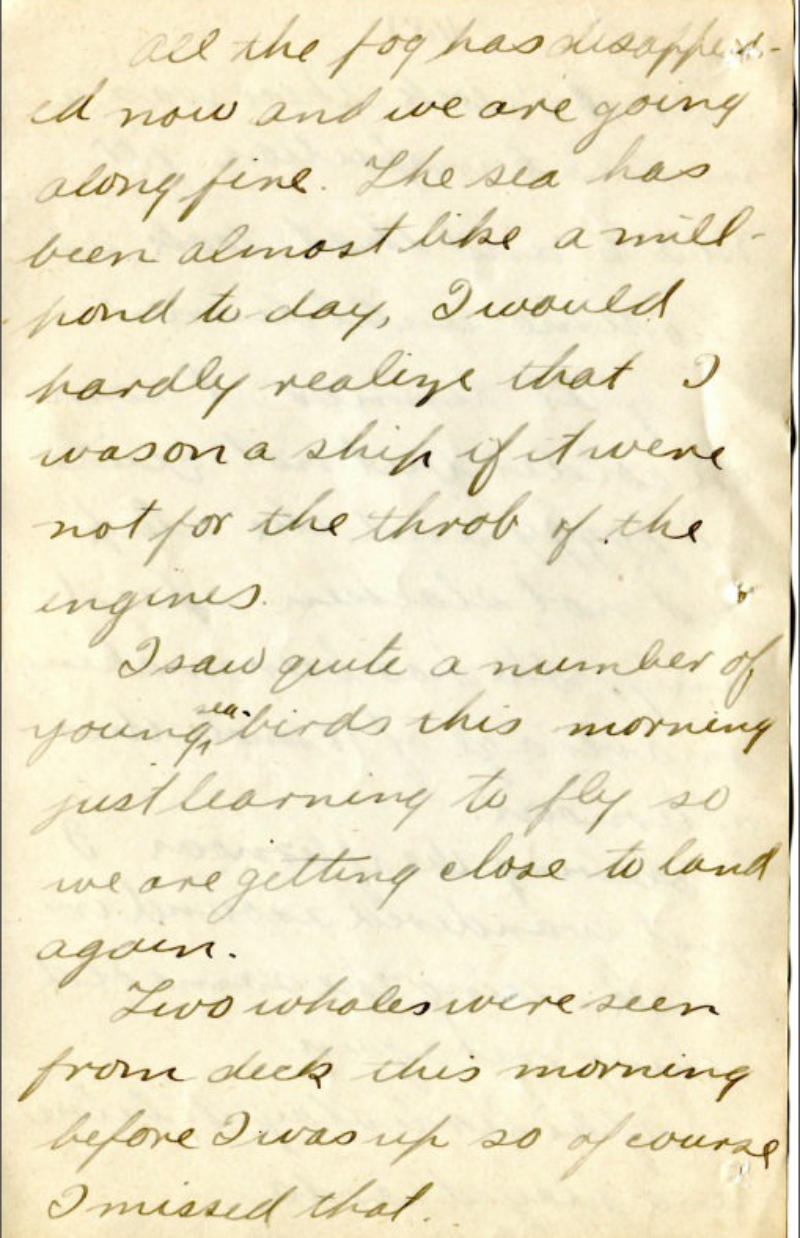 All the fog has disappear-
ed now and we are going
along fine. The sea has
been almost like a mill-
pond to day, I would
hardly realize that I
was on a ship if it were
not for the throb of the
engines.
I saw quite a number of
young sea-birds this morning
just learning to fly so
we are getting close to land
again.
Two whales were seen
from deck this morning
before I was up so of course
I missed that.